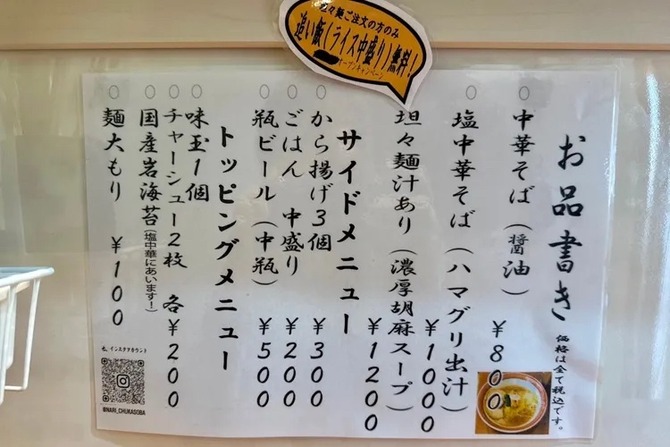 坦々麺ご注文の方のみ
追い飯(ライス中盛り)無料！
オープンキャンペーン
お品書き
価格は全て税込です。
○中華そば(醤油) ￥800
○塩中華そば(ハマグリ出汁) ￥1000
○坦々麺汁あり(濃厚胡麻スープ) ￥1200
サイドメニュー
○から揚げ3個 ￥300
○ごはん 中盛り ￥200
○瓶ビール(中瓶) ￥500
トッピングメニュー
○味玉1個
○チャーシュー2枚 各￥200
○国産岩海苔(塩中華にあいます!)
○麺大もり ￥100
インスタアカウント
@NARI_CHUKASOBA